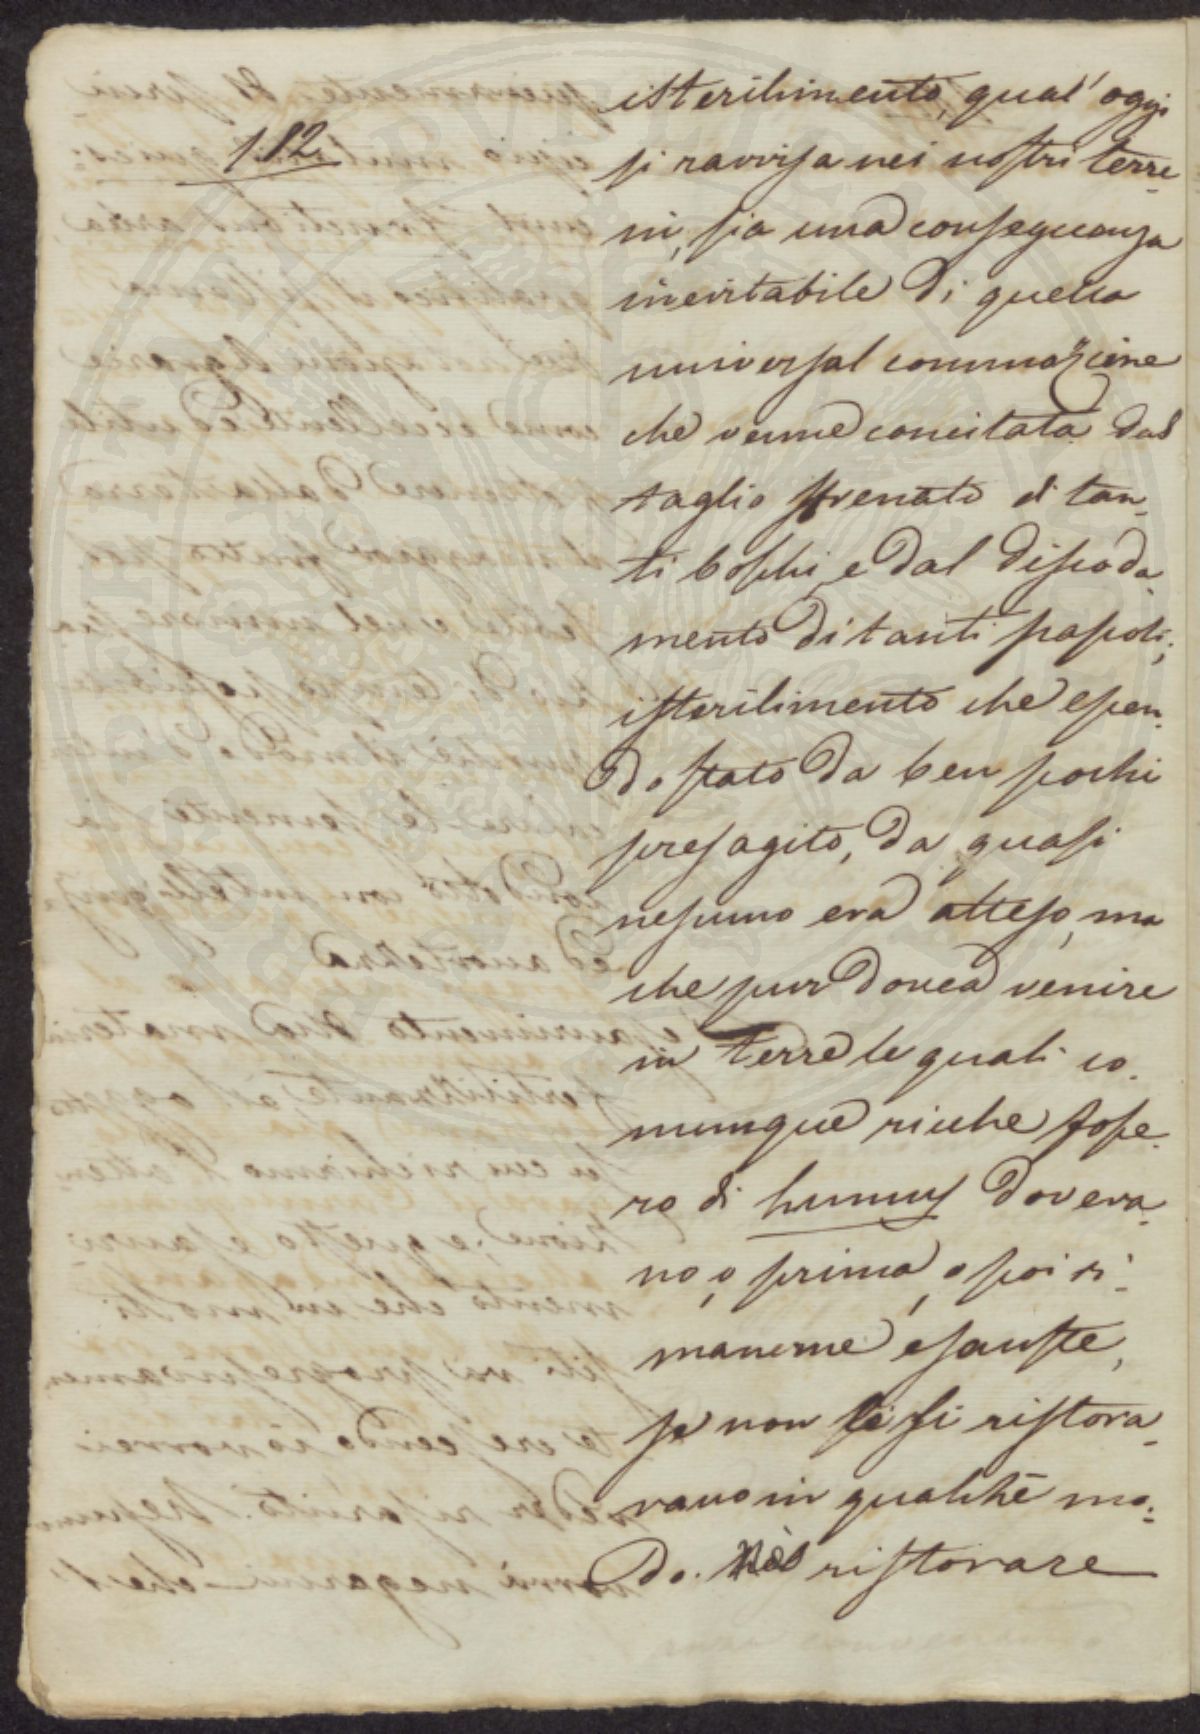 182
isterilimento, qual' oggi
si ravvisa nei nostri terre-
ni, sia una conseguenza
inevitabile di quella
universal commozione
che venne concitata dal
taglio sfrenato di tan-
ti boschi, e dal dissoda-
mento di tanti pascoli;
isterilimento che essen-
do stato da ben pochi
presagito, da quasi
nessuno era atteso, ma
che pur dovea venire
in terre le quali co-
munque ricche fosse-
ro di humus doveva-
no, o prima, o poi ri-
manerne esauste,
se non si ristora-
vano in qualche mo-
do. Nè ristorare